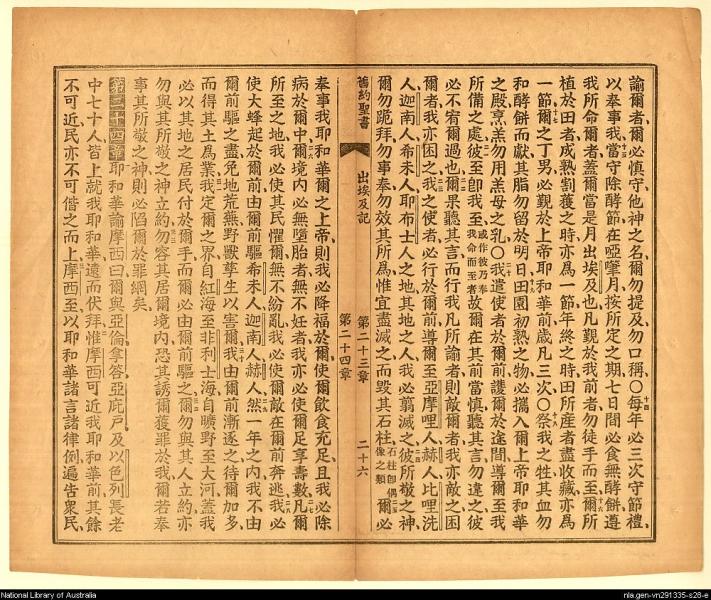 諭爾者爾必慎守他神之名爾勿提及勿口稱○十四每年必三次守節禮
以奉事我十五當守除酵節在啞肇月按所定之期七日間必食無酵餅遵
我所命爾者蓋爾當是月出埃及也凡覲於我前者勿徒手而至十六爾所
植於田者成熟割獲之時亦爲一節年終之時田所產者盡收藏亦爲
一節十七爾之丁男必覲於上帝耶和華前歲凡三次○十八祭我之牲其血勿
和酵餅而獻其脂勿留於明日十九田園初熟之物必攜入爾上帝耶和華
之殿烹羔勿用羔母之乳○二十我遣使者於爾前護爾於途間導爾至我
所備之處二一彼至卽我至或作彼乃奉我命而至者故爾在其前當慎聽其言勿違之彼
必不宥爾過也二二爾果聽其言而行我凡所諭者則敵爾者我亦敵之困
爾者我亦困之二三我之使者必行於爾前導爾至亞摩哩人赫人比哩洗
人迦南人希未人耶布士人之地其地之人我必翦滅之二四彼所敬之神
爾勿跪拜勿事奉勿效其所爲惟宜盡滅之而毀其石柱石柱卽偶像之類二五爾必
舊約聖書
出埃及記
第二十三章
第二十四章
二十六
奉事我耶和華爾之上帝則我必降福於爾使爾飲食充足且我必除
病於爾中二六爾境內必無墮胎者無不妊者我亦必使爾足享壽數二七凡爾
所至之地我必使其民懼爾無不紛亂我必使爾敵在爾前奔逃二八我必
使大蜂起於爾前由爾前驅希未人迦南人赫人二九然一年之內我不由
爾前驅之盡免地荒蕪野獸孳生以害爾三十我由爾前漸逐之待爾加多
而得其土爲業三一我定爾之界自紅海至非利士海自曠野至大河蓋我
必以其地之居民付於爾手而爾必由爾前驅之三二爾勿與其人立約亦
勿與其所敬之神立約三三勿容其居爾境內恐其誘爾獲罪於我爾若奉
事其所敬之神則必陷爾於罪網矣
第二十四章耶和華諭摩西曰爾與亞倫拿答亞庇戶及以色列長老
中七十人皆上就我耶和華遠而伏拜二惟摩西可近我耶和華前其餘
不可近民亦不可偕之而上三摩西至以耶和華諸言諸律倒遍告衆民
National Library of Australia
nla.gen-vn291335-s28-e